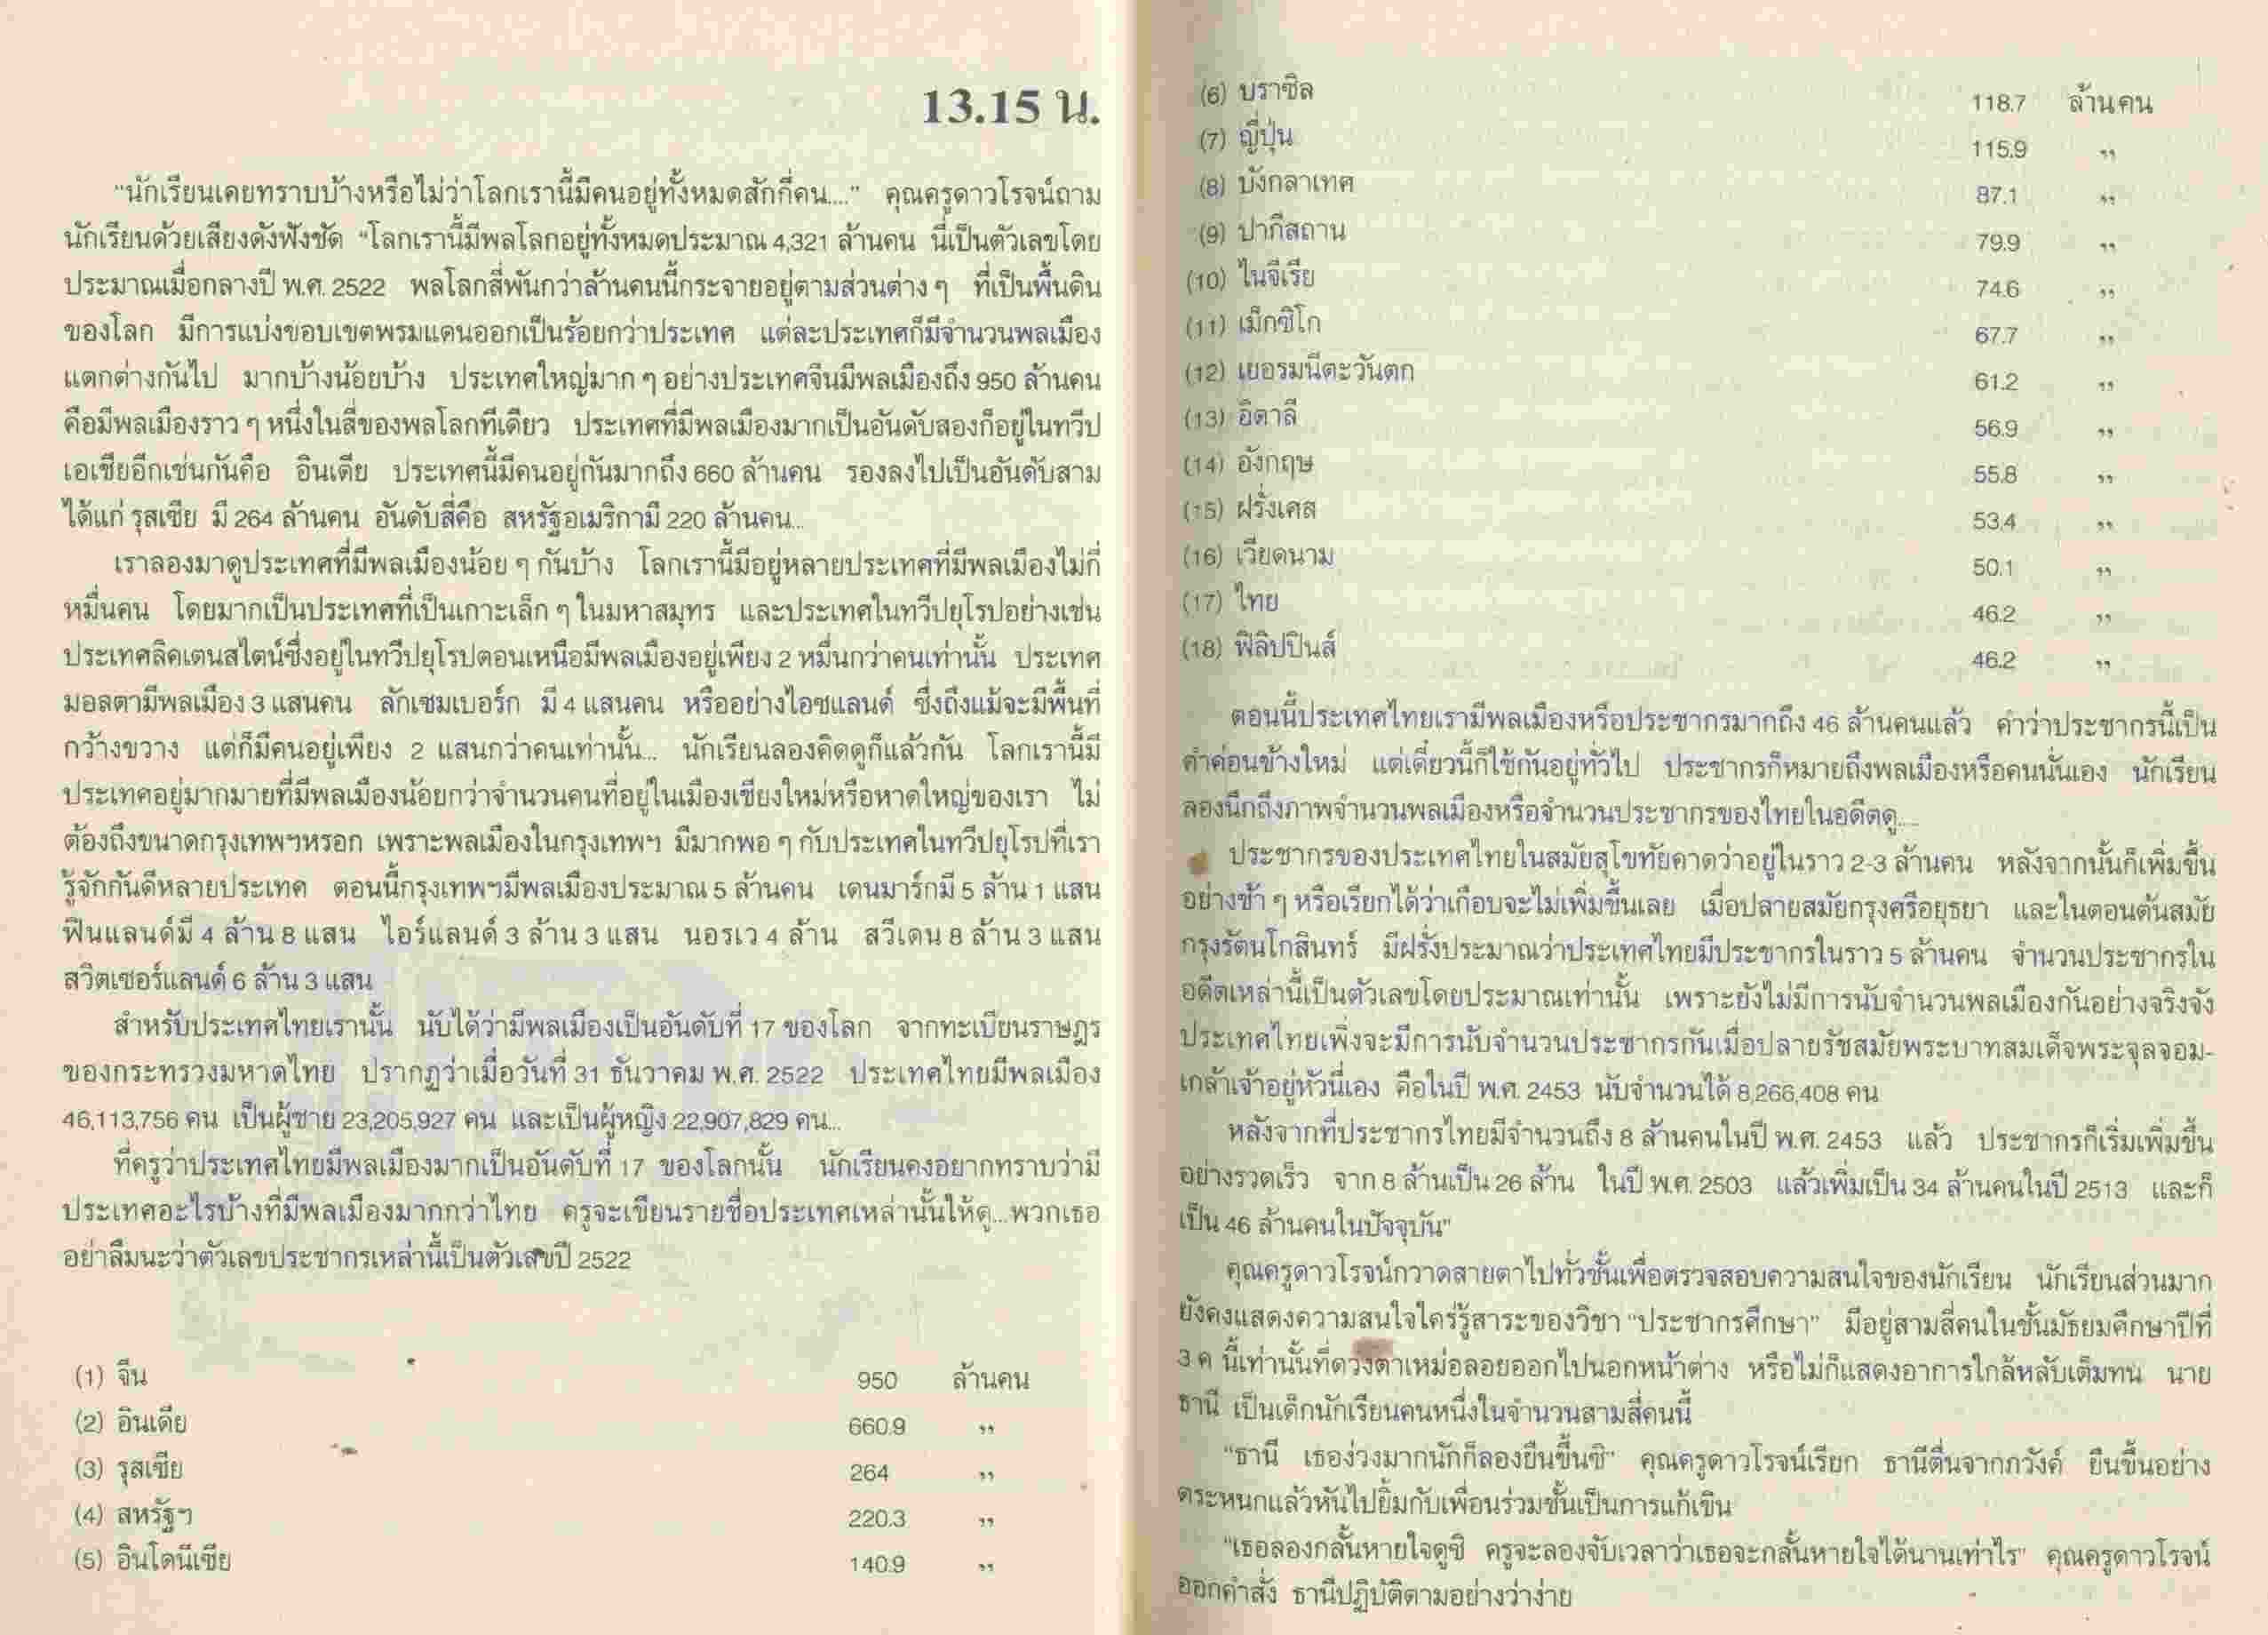 13.15 น.
“นักเรียนเคยทราบบ้างหรือไม่ว่าโลกเรานี้มีคนอยู่ทั้งหมดสักกี่คน....” คุณครูดาวโรจน์ถาม
นักเรียนด้วยเสียงดังฟังชัด “โลกเรานี้มีพลโลกอยู่ทั้งหมดประมาณ 4,321 ล้านคน นี่เป็นตัวเลขโดย
ประมาณเมื่อกลางปี พ.ศ. 2522 พลโลกสี่พันกว่าล้านคนนี้กระจายอยู่ตามส่วนต่าง ๆ ที่เป็นพื้นดิน
ของโลก มีการแบ่งขอบเขตพรมแดนออกเป็นร้อยกว่าประเทศ แต่ละประเทศก็มีจำนวนพลเมือง
แตกต่างกันไป มากบ้างน้อยบ้าง ประเทศใหญ่มาก ๆ อย่างประเทศจีนมีพลเมืองถึง 950 ล้านคน
คือมีพลเมืองราว ๆ หนึ่งในสี่ของพลโลกทีเดียว ประเทศที่มีพลเมืองมากเป็นอันดับสองก็อยู่ในทวีป
เอเชียอีกเช่นกันคือ อินเดีย ประเทศนี้มีคนอยู่กันมากถึง 660 ล้านคน รองลงไปเป็นอันดับสาม
ได้แก่ รุสเซีย มี 264 ล้านคน อันดับสี่คือ สหรัฐอเมริกามี 220 ล้านคน...
เราลองมาดูประเทศที่มีพลเมืองน้อย ๆ กันบ้าง โลกเรานี้มีอยู่หลายประเทศที่มีพลเมืองไม่กี่
หมื่นคน โดยมากเป็นประเทศที่เป็นเกาะเล็ก ๆ ในมหาสมุทร และประเทศในทวีปยุโรปอย่างเช่น
ประเทศลิคเตนสไตน์ซึ่งอยู่ในทวีปยุโรปตอนเหนือมีพลเมืองอยู่เพียง 2 หมื่นกว่าคนเท่านั้น ประเทศ
มอลตามีพลเมือง 3 แสนคน ลักเซมเบอร์ก มี 4 แสนคน หรืออย่างไอซแลนด์ ซึ่งถึงแม้จะมีพื้นที่
กว้างขวาง แต่ก็มีคนอยู่เพียง 2 แสนกว่าคนเท่านั้น... นักเรียนลองคิดดูก็แล้วกัน โลกเรานี้มี
ประเทศอยู่มากมายที่มีพลเมืองน้อยกว่าจำนวนคนที่อยู่ในเมืองเชียงใหม่หรือหาดใหญ่ของเรา ไม่
ต้องถึงขนาดกรุงเทพฯหรอก เพราะพลเมืองในกรุงเทพฯ มีมากพอ ๆ กับประเทศในทวีปยุโรปที่เรา
รู้จักกันดีหลายประเทศ ตอนนี้กรุงเทพฯมีพลเมืองประมาณ 5 ล้านคน เดนมาร์กมี 5 ล้าน 1 แสน
ฟินแลนด์มี 4 ล้าน 8 แสน ไอร์แลนด์ 3 ล้าน 3 แสน นอรเว 4 ล้าน สวีเดน 8 ล้าน 3 แสน
สวิตเซอร์แลนด์ 6 ล้าน 3 แสน
สำหรับประเทศไทยเรานั้น นับได้ว่ามีพลเมืองเป็นอันดับที่ 17 ของโลก จากทะเบียนราษฎร
ของกระทรวงมหาดไทย ปรากฏว่าเมื่อวันที่ 31 ธันวาคม พ.ศ. 2522 ประเทศไทยมีพลเมือง
46,113,756 คน เป็นผู้ชาย 23,205,927 คน และเป็นผู้หญิง 22,907,829 คน...
ที่ครูว่าประเทศไทยมีพลเมืองมากเป็นอันดับที่ 17 ของโลกนั้น นักเรียนคงอยากทราบว่ามี
ประเทศอะไรบ้างที่มีพลเมืองมากกว่าไทย ครูจะเขียนรายชื่อประเทศเหล่านั้นให้ดู...พวกเธอ
อย่าลืมนะว่าตัวเลขประชากรเหล่านี้เป็นตัวเลขปี 2522
(1) จีน 950 ล้านคน
(2) อินเดีย 660.9 ,,
(3) รุสเซีย 264 ,,
(4) สหรัฐฯ 220.3 ,,
(5) อินโดนีเซีย 140.9 ,,
(6) บราซิล 118.7 ล้านคน
(7) ญี่ปุ่น 115.9 ,,
(8) บังกลาเทศ 87.1 ,,
(9) ปากีสถาน 79.9 ,,
(10) ไนจีเรีย 74.6 ,,
(11) เม็กซิโก 67.7 ,,
(12) เยอรมนีตะวันตก 61.2 ,,
(13) อิตาลี 56.9 ,,
(14) อังกฤษ 55.8 ,,
(15) ฝรั่งเศส 53.4 ,,
(16) เวียดนาม 50.1 ,,
(17) ไทย 46.2 ,,
(18) ฟิลิปปินส์ 46.2 ,,
ตอนนี้ประเทศไทยเรามีพลเมืองหรือประชากรมากถึง 46 ล้านคนแล้ว คำว่าประชากรนี้เป็น
คำค่อนข้างใหม่ แต่เดี๋ยวนี้ก็ใช้กันอยู่ทั่วไป ประชากรก็หมายถึงพลเมืองหรือคนนั่นเอง นักเรียน
ลองนึกถึงภาพจำนวนพลเมืองหรือจำนวนประชากรของไทยในอดีตดู....
ประชากรของประเทศไทยในสมัยสุโขทัยคาดว่าอยู่ในราว 2-3 ล้านคน หลังจากนั้นก็เพิ่มขึ้น
อย่างช้า ๆ หรือเรียกได้ว่าเกือบจะไม่เพิ่มขึ้นเลย เมื่อปลายสมัยกรุงศรีอยุธยา และในตอนต้นสมัย
กรุงรัตนโกสินทร์ มีฝรั่งประมาณว่าประเทศไทยมีประชากรในราว 5 ล้านคน จำนวนประชากรใน
อดีตเหล่านี้เป็นตัวเลขโดยประมาณเท่านั้น เพราะยังไม่มีการนับจำนวนพลเมืองกันอย่างจริงจัง
ประเทศไทยเพิ่งจะมีการนับจำนวนประชากรกันเมื่อปลายรัชสมัยพระบาทสมเด็จพระจุลจอม-
เกล้าเจ้าอยู่หัวนี่เอง คือในปี พ.ศ. 2453 นับจำนวนได้ 8,266,408 คน
หลังจากที่ประชากรไทยมีจำนวนถึง 8 ล้านคนในปี พ.ศ. 2453 แล้ว ประชากรก็เริ่มเพิ่มขึ้น
อย่างรวดเร็ว จาก 8 ล้านเป็น 26 ล้าน ในปี พ.ศ. 2503 แล้วเพิ่มเป็น 34 ล้านคนในปี 2513 และก็
เป็น 46 ล้านคนในปัจจุบัน”
คุณครูดาวโรจน์กวาดสายตาไปทั่วชั้นเพื่อตรวจสอบความสนใจของนักเรียน นักเรียนส่วนมาก
ยังคงแสดงความสนใจใคร่รู้สาระของวิชา “ประชากรศึกษา” มีอยู่สามสี่คนในชั้นมัธยมศึกษาปีที่
3 ค นี้เท่านั้นที่ดวงตาเหม่อลอยออกไปนอกหน้าต่าง หรือไม่ก็แสดงอาการใกล้หลับเต็มทน นาย
ธานี เป็นเด็กนักเรียนคนหนึ่งในจำนวนสามสี่คนนี้
“ธานี เธอง่วงมากนักก็ลองยืนขึ้นซิ” คุณครูดาวโรจน์เรียก ธานีตื่นจากภวังค์ ยืนขึ้นอย่าง
ตระหนกแล้วหันไปยิ้มกับเพื่อนร่วมชั้นเป็นการแก้เขิน
“เธอลองกลั้นหายใจดูซิ ครูจะลองจับเวลาว่าเธอจะกลั้นหายใจได้นานเท่าไร” คุณครูดาวโรจน์
ออกคำสั่ง ธานีปฏิบัติตามอย่างว่าง่าย